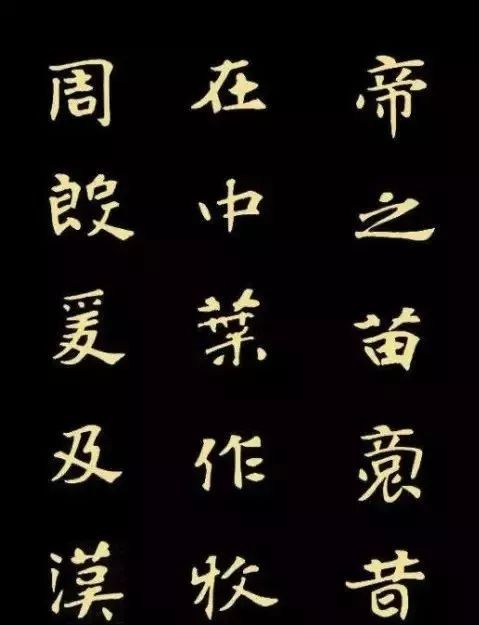 帝之苗裔昔
在中葉作牧
周殷爰及漢